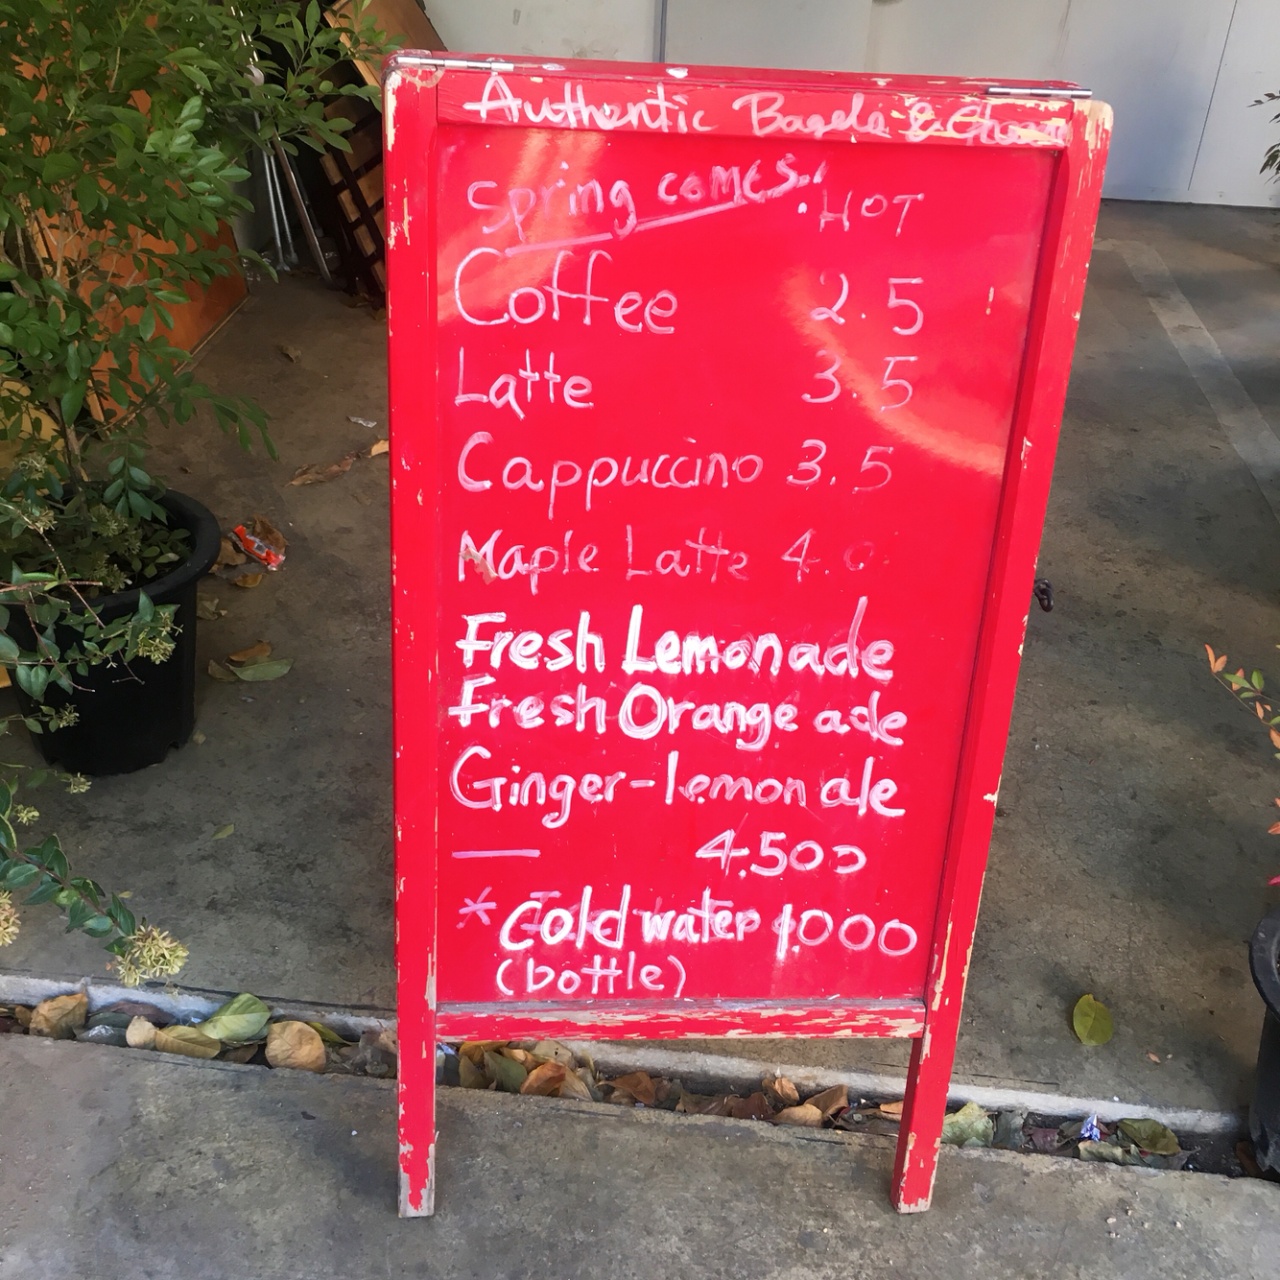 Authentic Bagels &
Spring comes..
HOT
Coffee 2.5
Latte 3.5
Cappuccino 3.5
Maple Latte 4.0
Fresh Lemonade
Fresh Orange ade
Ginger-lemon ale
— 4.500
* Cold water 1.000
(bottle)